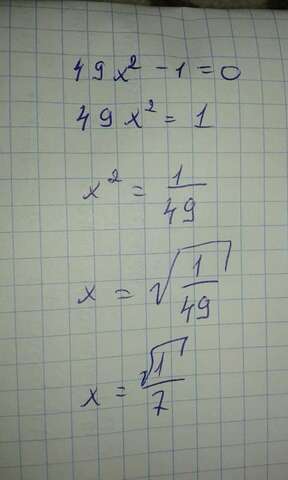 49x² - 1 = 0
49x² = 1
x² = 1/49
x = √(1/49)
x = √1/7